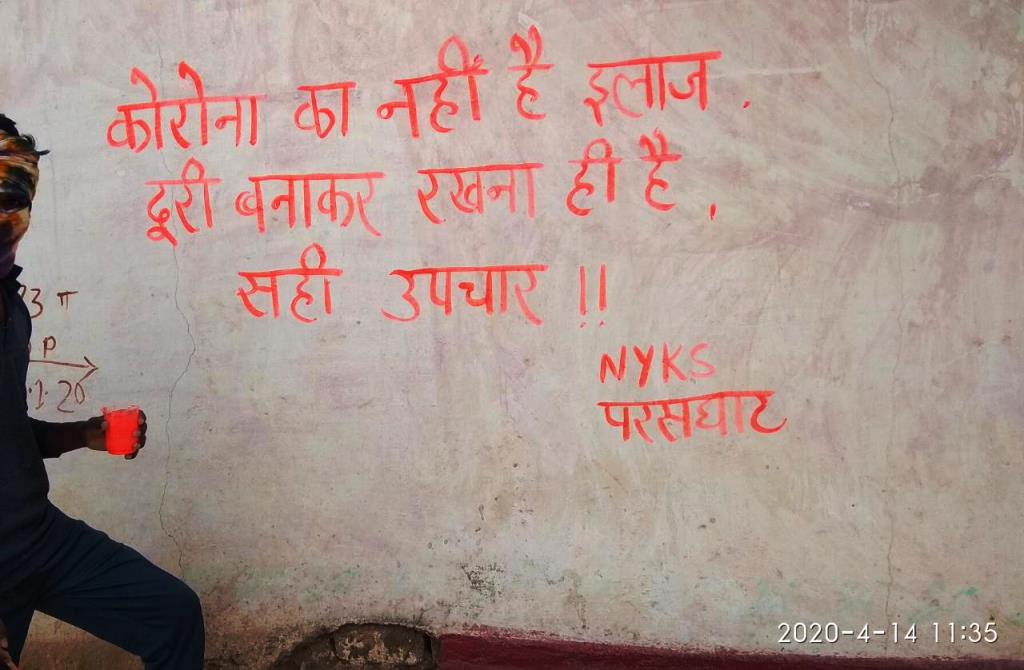 कोरोना का नहीं है इलाज ,
दूरी बनाकर रखना ही है ,
सही उपचार !!
NYKS
परसघाट
P
2020-4-14 11:35